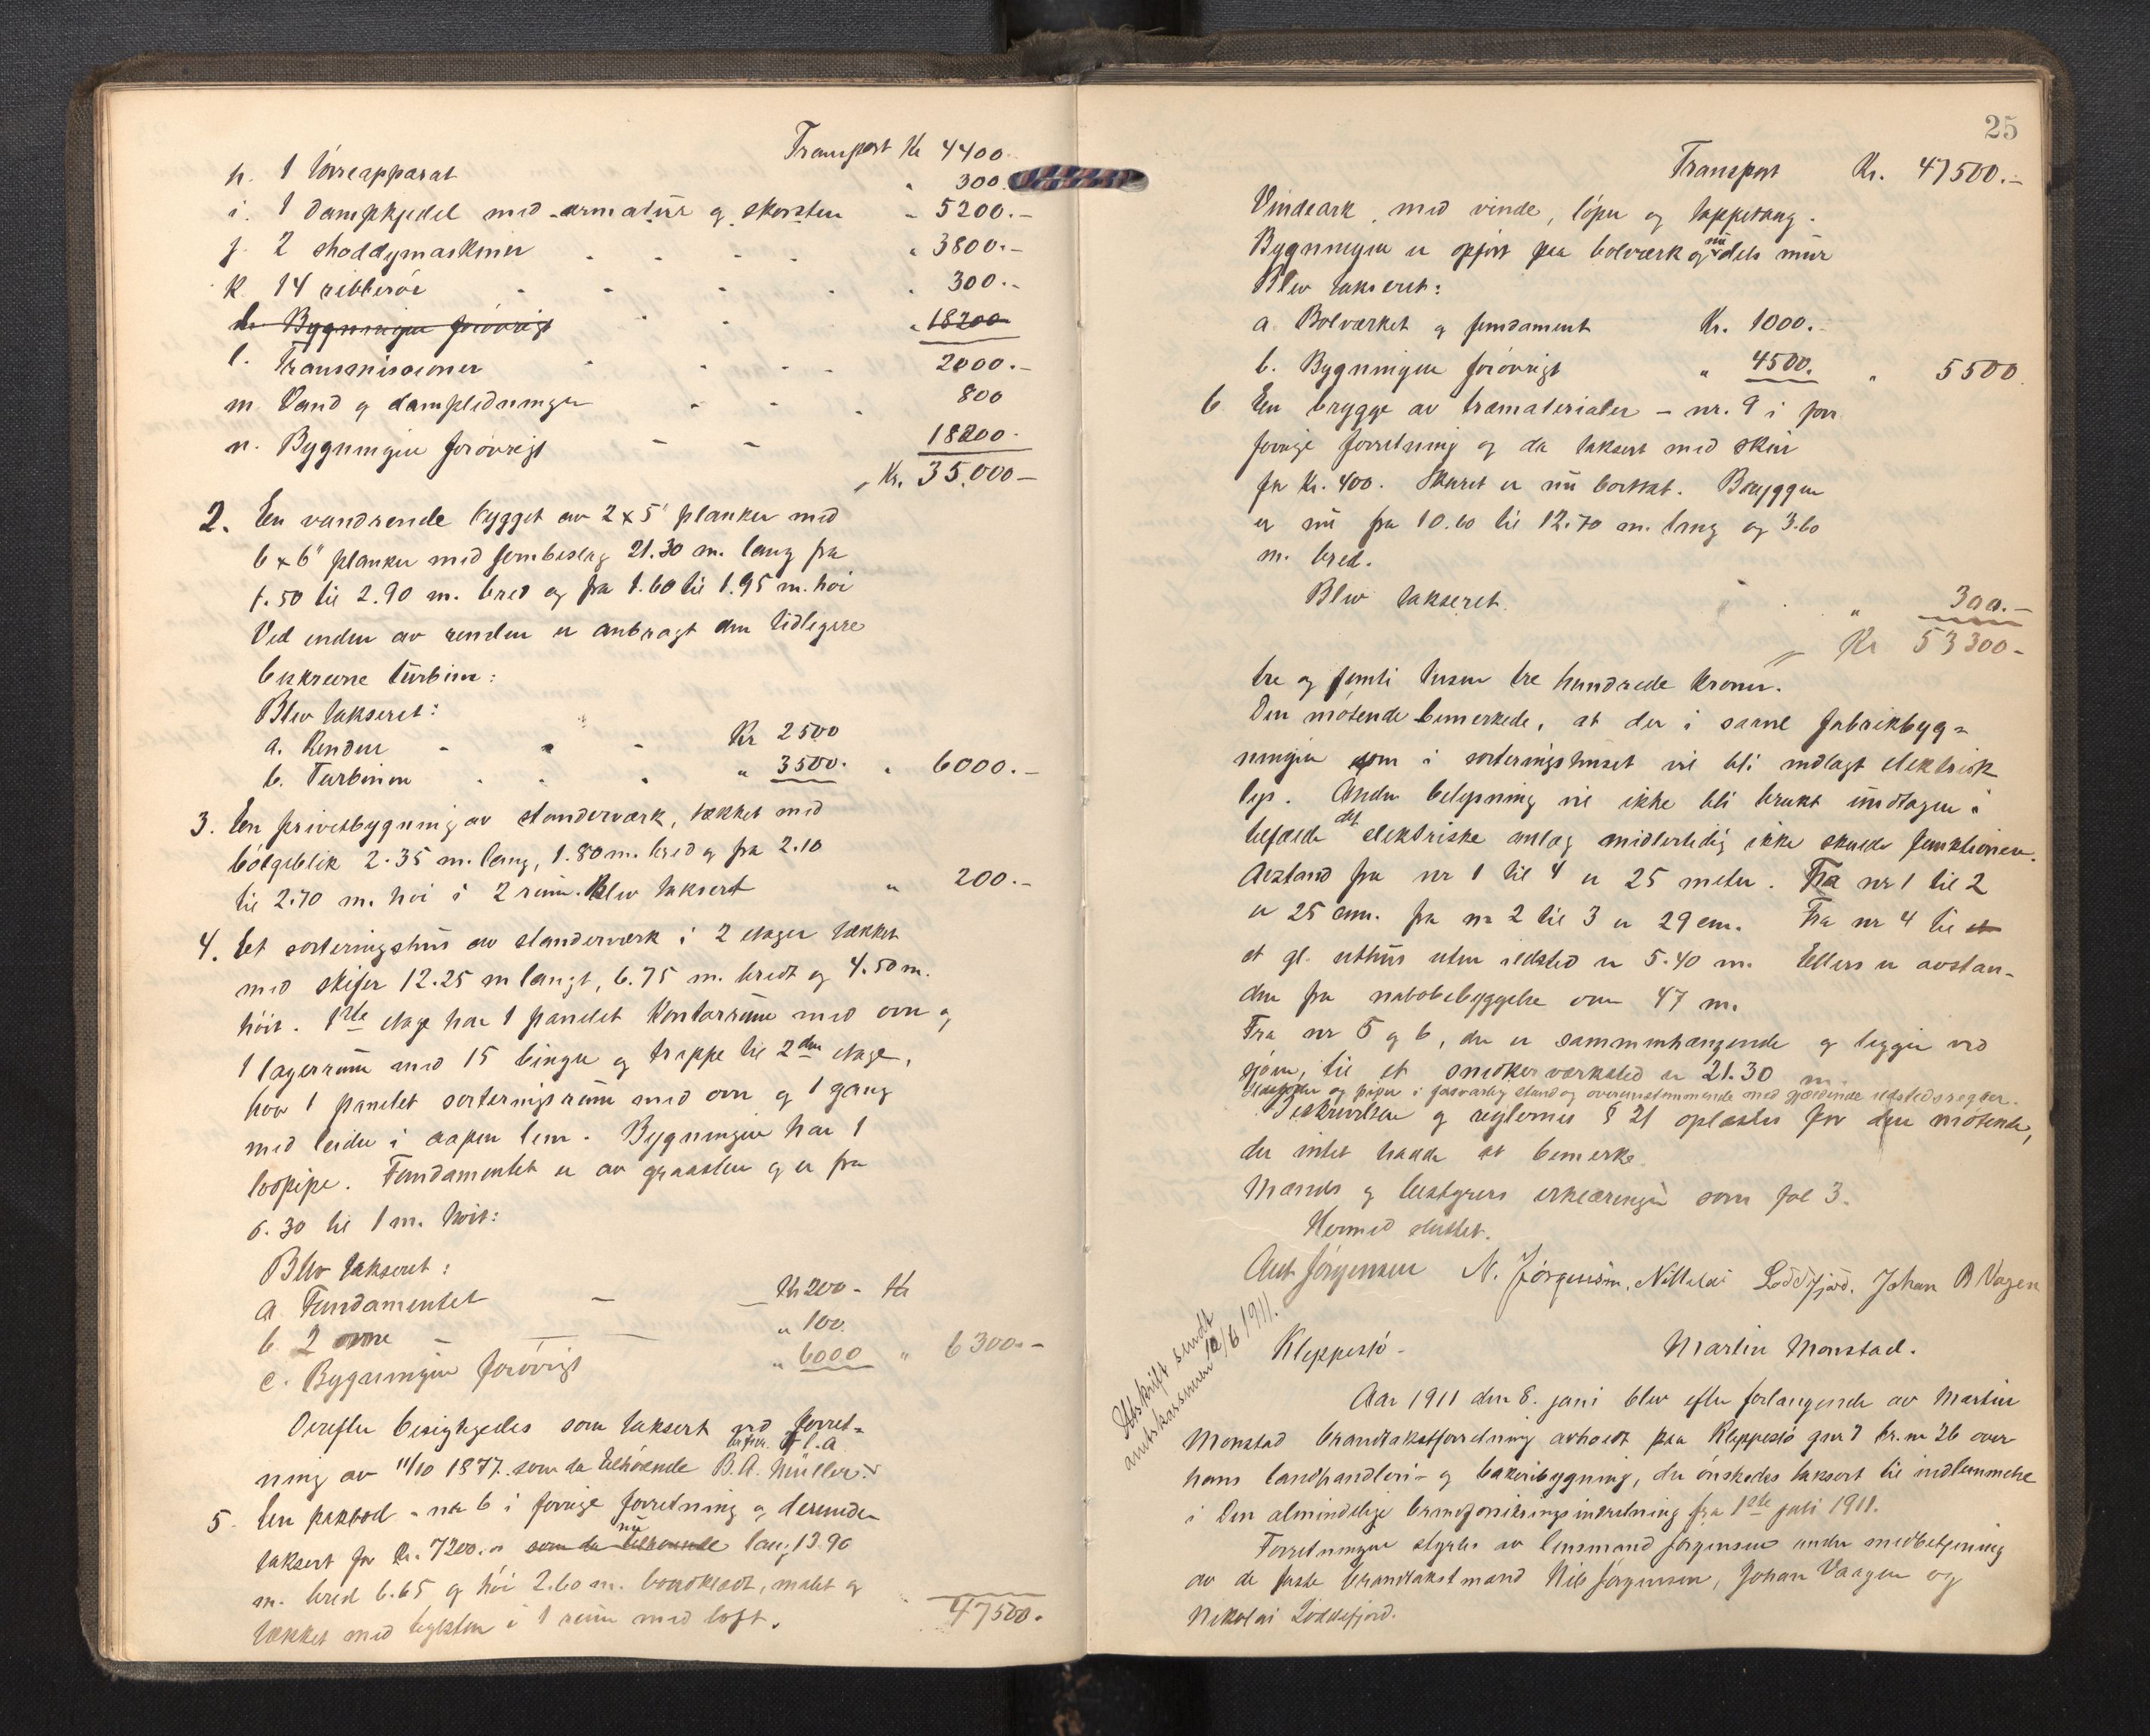 Transport Kr 4400.
h. 1 tørreapparat " 300.
i. 1 dampkjedel med armatur og skorsten " 5200.-
j. 2 shoddymaskiner " 3800.-
k. 14 ribberør " 300.-
l. Bygningen forøvrigt " 18200
l. Transmissioner 2000.-
m. Vand og dampledninger 800
n. Bygningen forøvrigt 18200.
Kr. 35.000-
2. En vandrende bygget av 2 x 5" planker med
6 x 6" planker med jernbeslag 21.30 m. lang fra
1.50 til 2.90 m. bred og fra 1.60 til 1.95 m. høi
Ved enden av renden er anbragt den tidligere
beskrevne turbin:
Blev takseret:
a. Renden Kr 2500
b. Turbinen " 3500. " 6000.-
3. En privetbygning av standerværk, tækket med
bølgeblik 2.35 m. lang, 1.80 m. bred og fra 2.10
til 2.70 m. høi i 2 rum. Blev taksert " 200.-
4. Et sorteringshus av standerværk i 2 etager tækket
med skifer 12.25 m langt, 6.75 m. bredt og 4.50 m.
høit. 1ste etage har 1 panelet kontorrum med ovn og
1 lagerrum med 15 binger og trappe til 2den etage,
hvor 1 panelet sorteringsrum med ovn og 1 gang
med leider i aapen lem. Bygningen har 1
loopipe. Fundamentet er av graasten og er fra
0.30 til 1 m. høit:
Blev takseret:
a. Fundamentet Kr 200 - Kr
b. 2 ovne " 100.
c. Bygningen forøvrigt " 6000 " 6300.-
Derefter besigtigedes som taksert ved forret-
ning av 11/10 1877. som da tilhørende B. A. Müller.
5. En pakbod - nr 6 i forrige forretning og derunder
taksert for Kr. 7200.- som da tilhørende nu lang 13.90
m. bred 6.65 og høi 2.60 m. bordklædt, malet og
tækket med teglsten i 1 rum med loft.
47500.
25
Transport Kr. 47500.-
Vindeark, med vinde, løper og tappetang.
Bygningen er opført paa bolværk og nu dels mur
Blev takseret:
a. Bolværket og fundament Kr. 1000.-
b. Bygningen forøvrigt " 4500. " 5500.
6 En brygge av træmaterialer - nr. 9 i forr.
forrige forretning og da taksert med skur
for Kr. 400. Skuret er nu borttat. Bryggen
er nu fra 10.60 til 12.70 m. lang og 3.60
m. bred.
Blev takseret " 300.-
Kr 53300-
tre og femti tusen tre hundrede kroner.
Den møtende bemerkede, at der i savel fabrikbyg-
ningen som i sorteringshuset vil bli indlagt elektrisk
lys. Anden belysning vil ikke bli brukt undtagen i
tilfælde det elektriske anlæg midlertidig ikke skulde funktionere.
Avstand fra nr 1 til 4 er 25 meter. Fra nr 1 til 2
er 25 cm. fra nr 2 til 3 er 29 cm. Fra nr 4 til et
et gl. uthus uten ildsted er 5.40 m. Ellers er avstan-
den fra nabobebyggelse over 47 m.
Fra nr 5 og 6, der er sammenhængende og ligger ved
sjøen, til et snekkerværksted er 21.30 m.
og piper i forsvarlig stand og overensstemmende med gjældende ildstedsregler.
Beskrivelsen og reglernes § 21 oplæstes for den møtende,
der intet hadde at bemerke.
Mænds og bestyrers erklæringer som fol 3.
Hermed sluttet.
Ant Jørgensen N. Jørgensen, Nikolai Loddefjord. Johan B Vagen
Avskrift sendt
amtskassereren 10/6 1911.
Kleppestø - Martin Monstad.
Aar 1911 den 8. juni blev efter forlangende av Martin
Monstad brandtakstforretning avholdt paa Kleppestø gnr 7 br.nr 26 over
hans landhandleri- og bakeribygning, der ønskedes taksert til indlemmelse
i Den almindelige brandforsikringsindretning fra 1ste juli 1911.
Forretningen styrtes av lensmand Jørgensen under medbetjening
av de faste brandtakstmænd Nils Jørgensen, Johan Vaagen og
Nikolai Loddefjord.